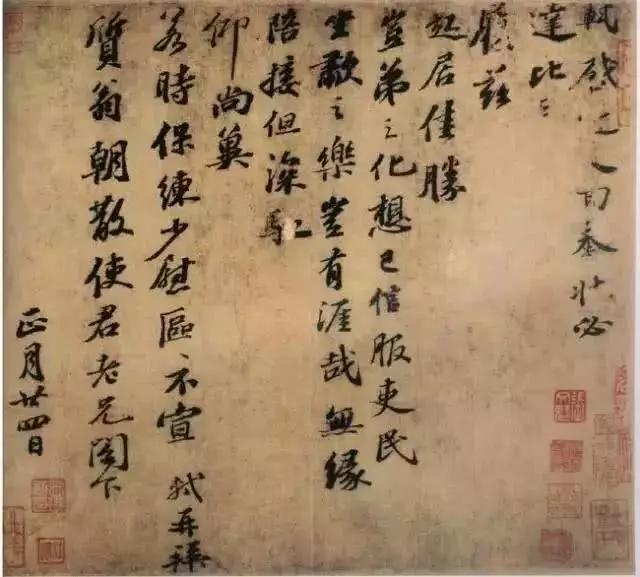 軾啟近人回奉狀必
達比
履茲
起居佳勝
豈弟之化想已信服吏民
坐歗之樂豈有涯哉無緣
陪接但深馳
仰尚冀
若時保練少慰區不宣 軾再拜
質翁朝散使君老兄閣下
正月廿四日